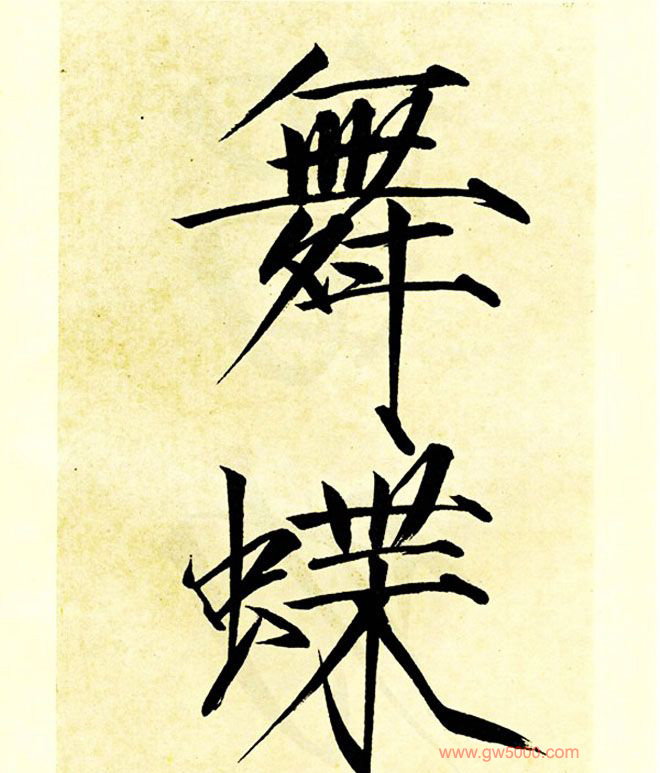 舞
蝶
www.gw5000.com